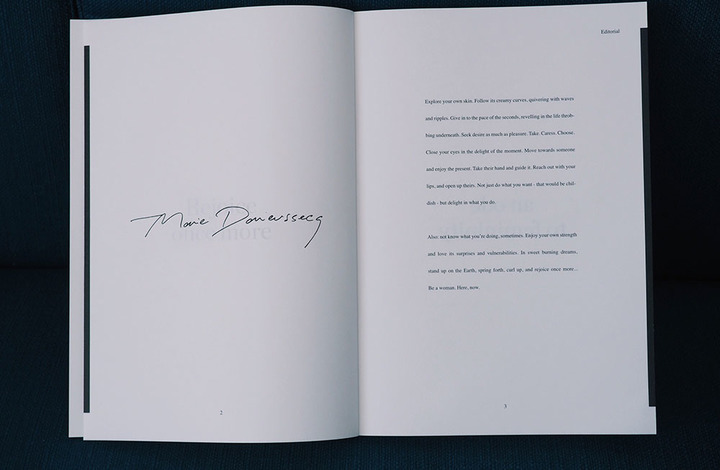 Marie Darrieussecq
2
Editorial
Explore your own skin. Follow its creamy curves, quivering with waves
and ripples. Give in to the pace of the seconds, revelling in the life throb-
bing underneath. Seek desire as much as pleasure. Take. Caress. Choose.
Close your eyes in the delight of the moment. Move towards someone
and enjoy the present. Take their hand and guide it. Reach out with your
lips, and open up theirs. Not just do what you want - that would be chil-
dish - but delight in what you do.
Also: not know what you're doing, sometimes. Enjoy your own strength
and love its surprises and vulnerabilities. In sweet burning dreams,
stand up on the Earth, spring forth, curl up, and rejoice once more...
Be a woman. Here, now.
3